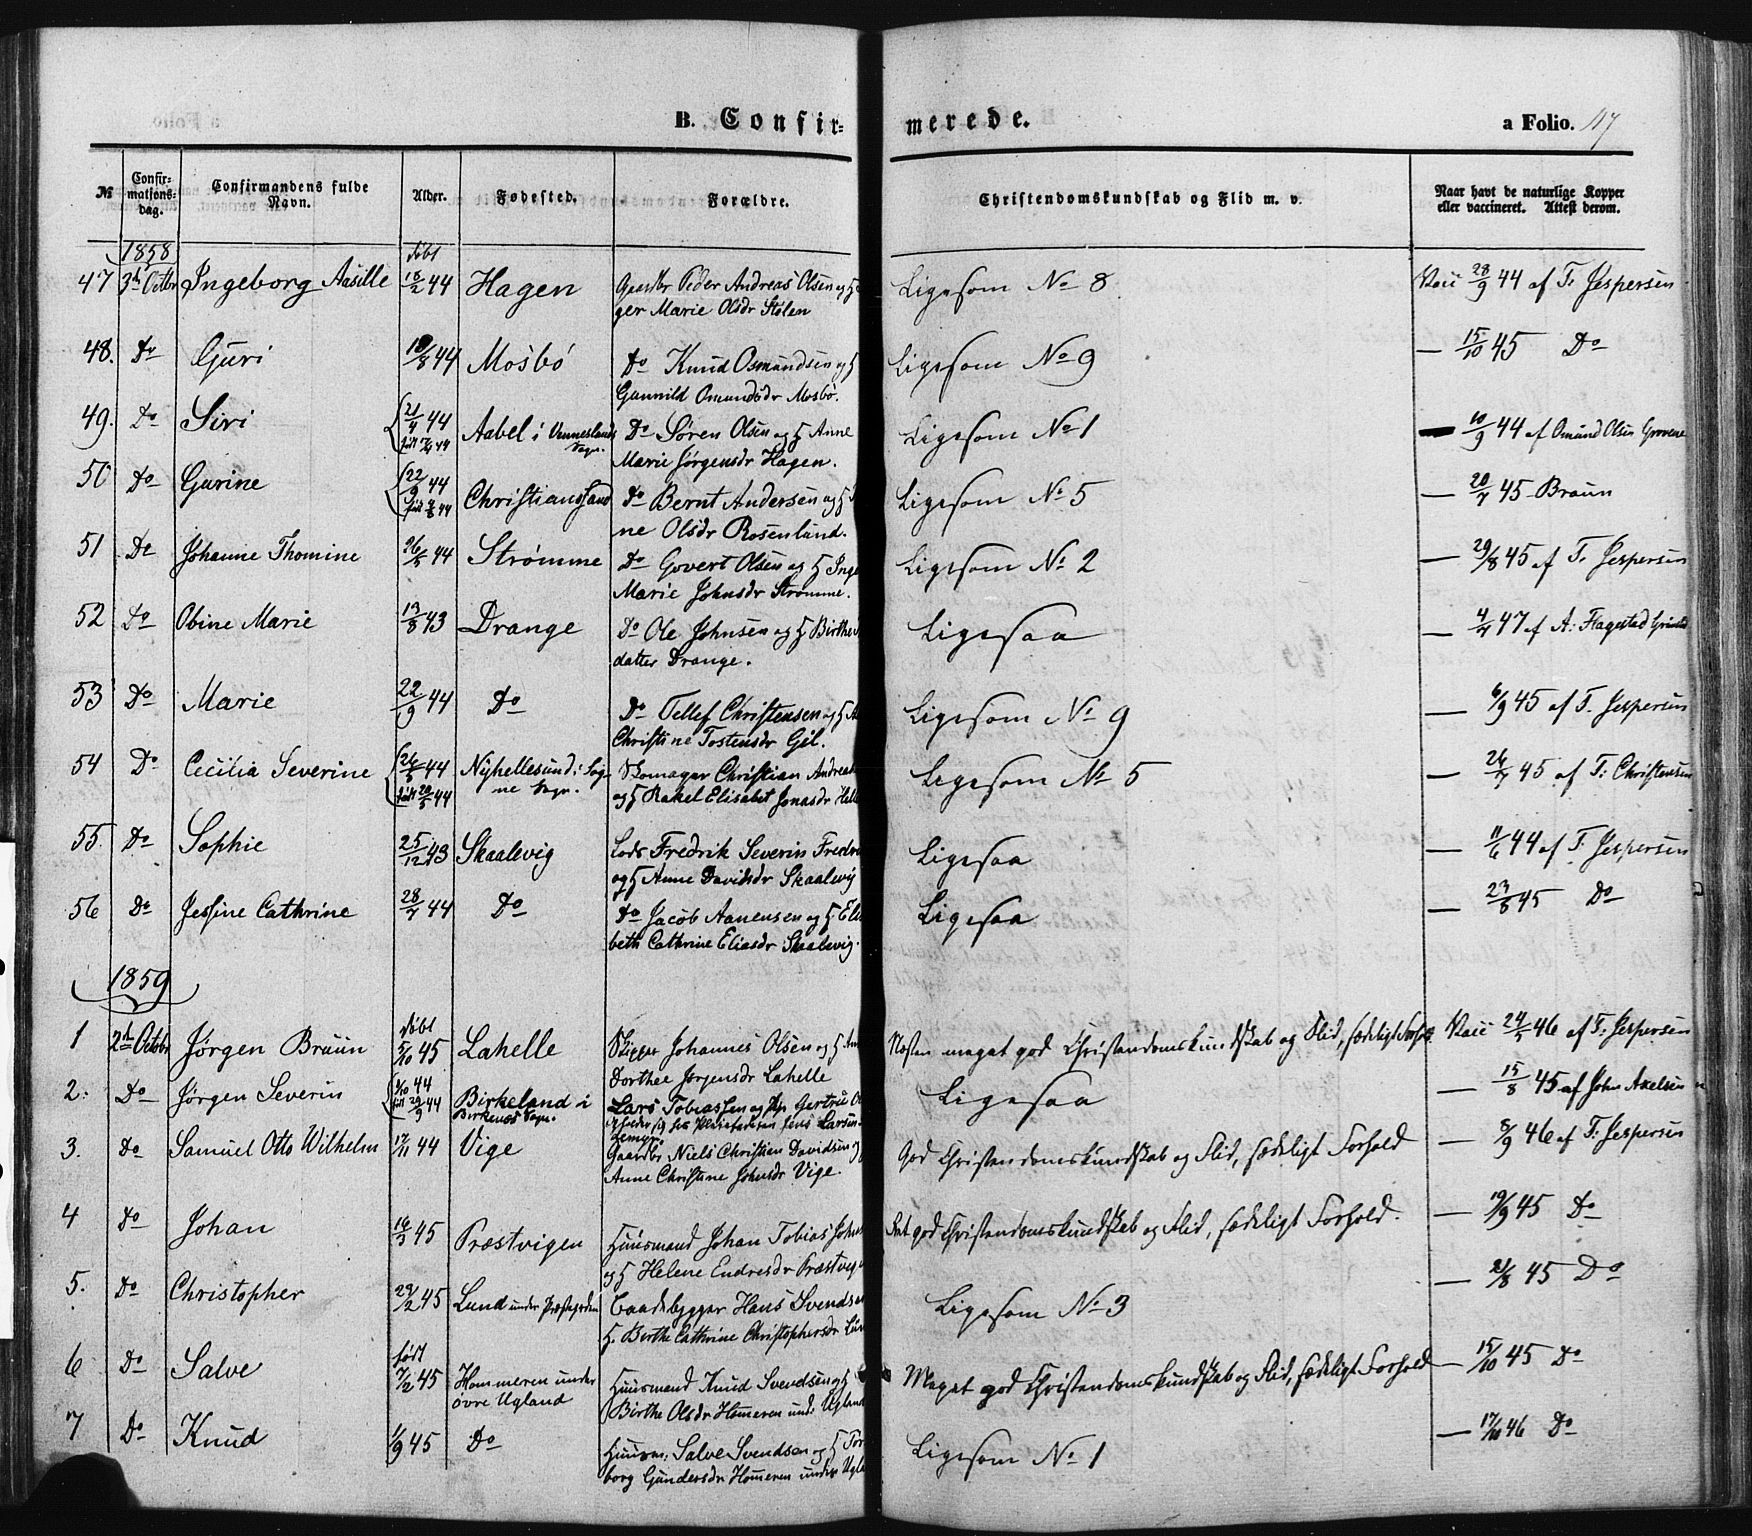 B. Confir-
merede.
a Folio. 117
№
Confir-
mations-
dag.
Confirmandens fulde
Navn.
Alder.
Fødested.
Forældre.
Christendomskundskab og Flid m. v.
Naar havt de naturlige Kopper
eller vaccineret. Attest derom.
1858 døbt
47 3die Octbr Ingeborg Aasille 18/2 44 Hagen Gaardbr Peder Andreas Olsen og H Ligesom No 8 Vacc 28/9 44 af T. Jespersen
ger Marie Olsdr Stølen
48. Do Guri 10/8 44 Mosbö Do Knud Osmundsen og H Ligesom No 9 — 15/10 45 Do
Gunnild Omundsdr Mosbö.
49. Do Siri 21/4 44 Aabel i Vennesland Do Søren Olsen og H Anne Ligesom No 1 — 10/9 44 af Omund Olsen
Sogn. Marie Jörgensdr Hagen.
50 Do Gurine 22/9 44 Christianssand Do Bernt Andersen og H Ligesom No 5 — 20/7 45 Braun
ne Olsdr Rosenlund.
51 Do Johanne Thomine 26/5 44 Strømme Do Govert Olsen og H Inge Ligesom No 2 — 29/8 45 af T. Jespersen
Marie Johnsdr Strømme.
52 Do Obine Marie 13/8 43 Drange Do Ole Johnsen og H Birthe Ligesaa — 4/7 47 af A: Flagestad
datter Drange.
53 Do Marie 22/9 44 Do Do Tellef Christensen og H Ligesom No 9 — 6/9 45 af T. Jespersen
Christine Tostensdr Gil.
54 Do Cecilia Severine 26/5 44 Nyhellesund i Sog- Skomager Christian Andreas Ligesom No 5 — 26/7 45 af T: Christensen
født 20/5 44 ne Sogn. og H Rakel Elisabet Jonasdr Helle
55. Do Sophie 25/12 43 Skaalevig Lods Fredrik Severin Fredri Ligesaa — 11/6 44 af T. Jespersen
og H Anne Davidsdr Skaalevig
56 Do Jessine Cathrine 28/7 44 Do Do Jacob Aanensen og H Elisa Ligesaa — 23/8 45 Do
beth Cathrine Eliasdr Skaalevig.
1859
døbt
1 2den Octobr Jörgen Braun 5/10 45 Lahelle Skipper Johannes Olsen og H Næsten meget god Christendomskundskab og Flid, sædeligt Forhold Vacc 24/5 46 af T: Jespersen
Dorthee Jørgensdr Lahelle
2. Do Jørgen Severin født 29/9 44 Birkeland i Lars Tobiassen og Gertru Ligesaa — 15/8 45 af John Axelsen
Birkenes Sogn.
3. Do Samuel Otto Wilhelm 17/11 44 Vige Gaardbr Niels Christian Davidsen og God Christendomskundskab og Flid, sædeligt Forhold — 8/9 46 af T: Jespersen
Anne Christine Johnsdr Vige.
4 Do Johan 16/3 45 Præstvigen Huusmand Johan Tobias John god Christendomskundskab og Flid, sædeligt Forhold. — 19/9 45 Do
og H Helene Endresdr Præstvigen
5. Do Christopher 23/2 45 Lund under Præstegården Baadebygger Hans Svendsen Ligesom No 3 — 21/8 45 Do
H. Birthe Cathrine Christophersdr Lun
født
6 Do Salve 7/2 45 Hommeren under Huusmand Knud Svendsen og H Meget god Christendomskundskab og Flid, sædeligt Forhold — 15/10 45 Do
övre Ugland Birthe Olsdr Homeren unde Ugland
7 Do Knud 1/9 45 Do Huusm: Salve Svendsen og H Tor Ligesom No 1 — 17/10 46 Do
borg Gundersdr Homeren under Ugla